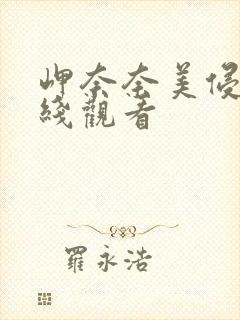 岬奈奈美侵
綫觀看
羅永浩